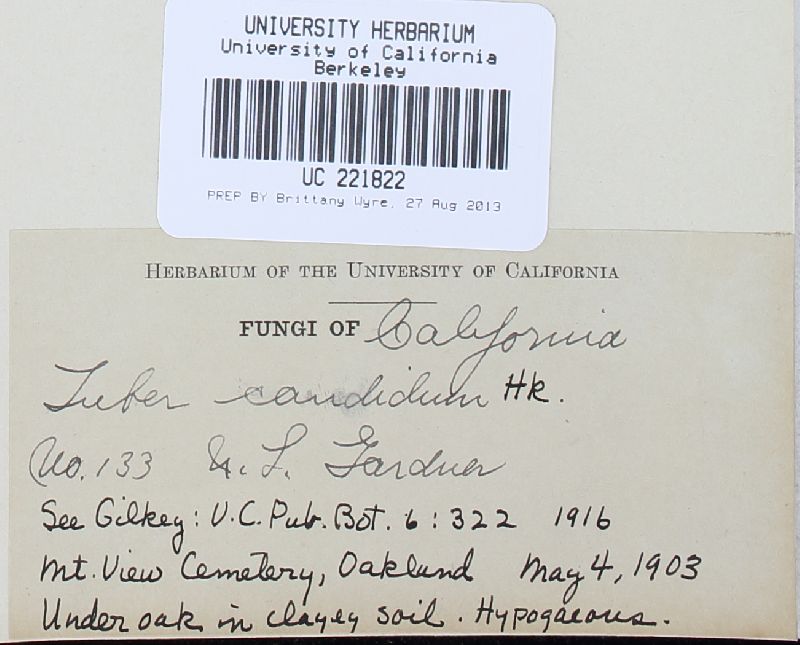 UNIVERSITY HERBARIUM
University of California
Berkeley
UC 221822
PREP BY Brittany Wyre, 27 Aug 2013
HERBARIUM OF THE UNIVERSITY OF CALIFORNIA
FUNGI OF California
Tuber candidum Hk.
No. 133 N. L. Gardner
See Gilkey: U.C. Pub. Bot. 6: 322 1916
Mt. View Cemetery, Oakland May 4, 1903
Under oak in clayey soil. Hypogaeous.